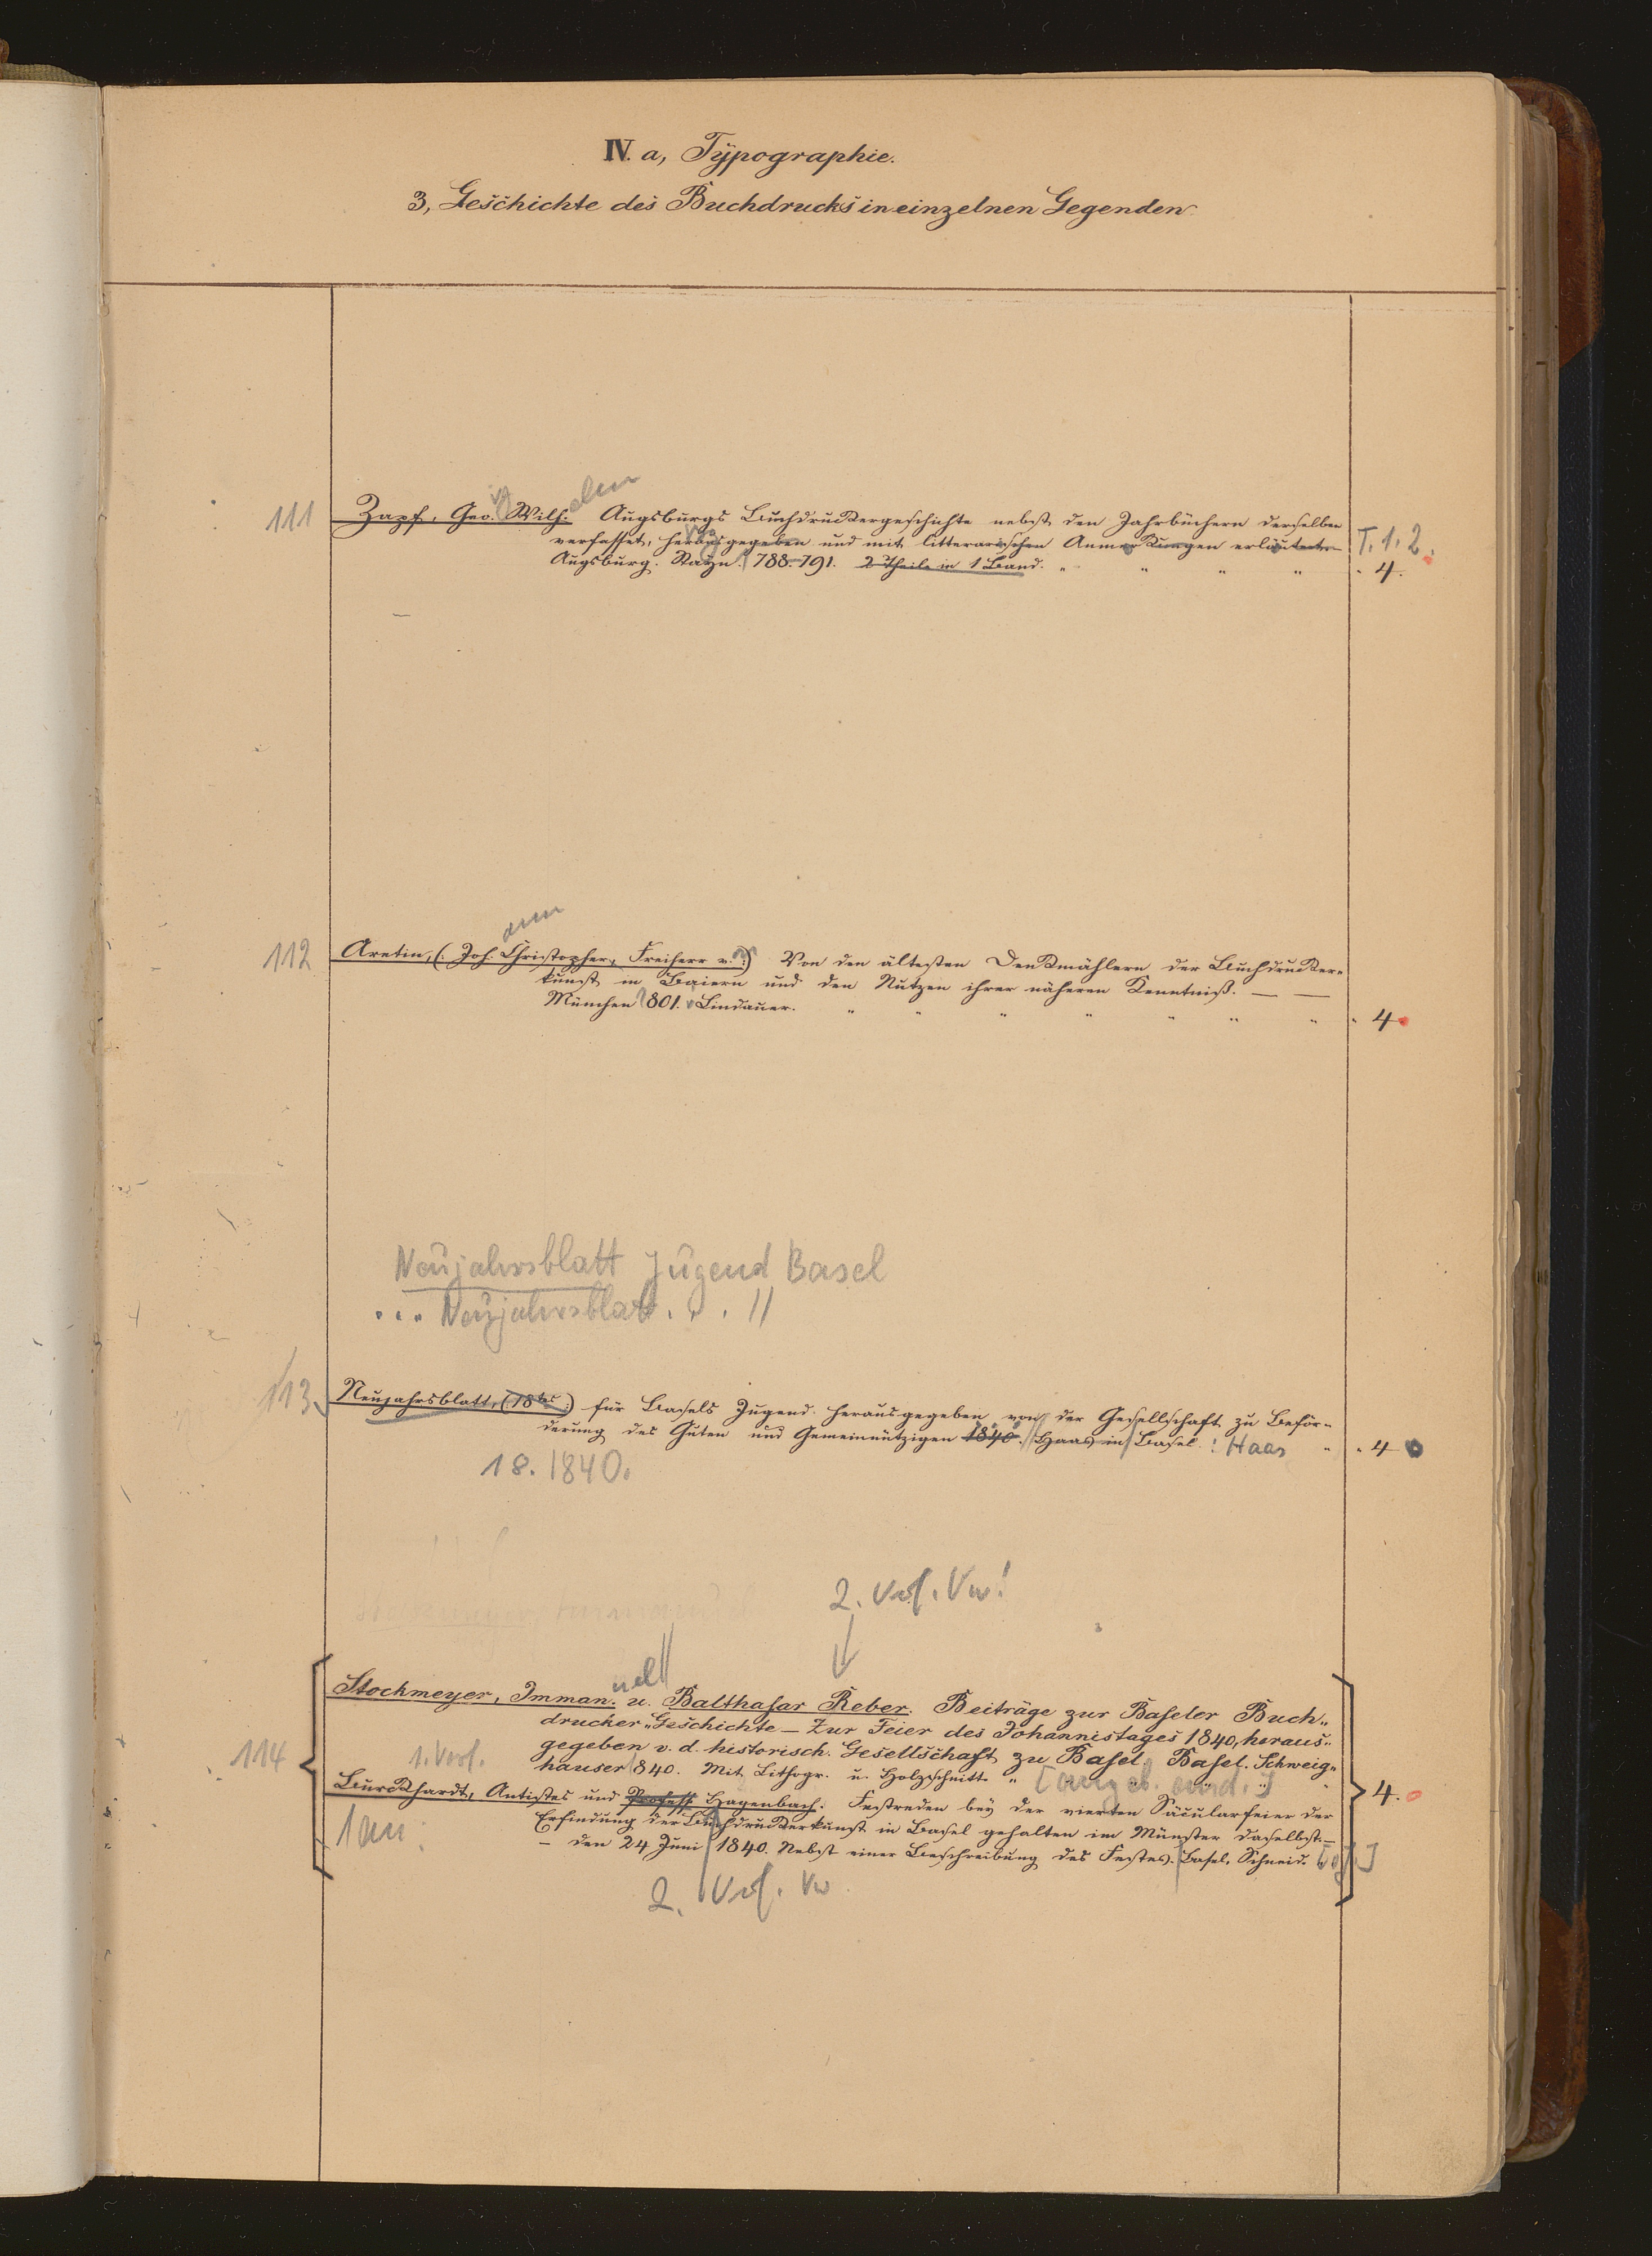 IV. a, Typographie.
3, Geschichte des Buchdrucks in einzelnen Gegenden.
elm
111 Zapf, Geo. Wilh: Augsburgs Buchdruckergeschichte nebst den Jahrbüchern derselben
verfasset, herausgegeben und mit litterarischen Anmerkungen erläutert. T. 1. 2.
Augsburg. 788-791. 2 Theile in 1 Band. " " " " " 4.
ann
112 Aretin, (: Joh. Christopher, Freiherr v. :) Von den ältesten Denkmählern der Buchdrucker-
kunst in Baiern und den Nutzen ihrer näheren Kenntniß. — —
München 801. Lindauer. " " " " " " " " 4
Neujahrsblatt Jugend Basel
... Neujahrsblatt . . . //
113. Neujahrsblatt, (: 18tes :) für Basels Jugend herausgegeben von der Gesellschaft zu Beför-
derung des Guten und Gemeinnützigen 1840. Haas in Basel. : Haas " " 4
18. 1840.
2. Verf. Vw!
uel //
Stockmeyer, Imman. u. Balthasar Reber. Beiträge zur Baseler Buch-
drucker-Geschichte — Zur Feier des Johannistages 1840, heraus-
gegeben v. d. historisch. Gesellschaft zu Basel. Basel. Schweig-
114 1. Verf. hauser 840. Mit Lithogr. u. Holzschnitt. "
Burckhardt, Antistes und Profess. Hagenbach. Festreden bey der vierten Säcularfeier der 4.
1 an: Erfindung der Buchdruckerkunst in Basel gehalten im Münster daselbst. —
— den 24 Juni 1840. Nebst einer Beschreibung des Festes. Basel, Schneid.
2. Verf. Vw